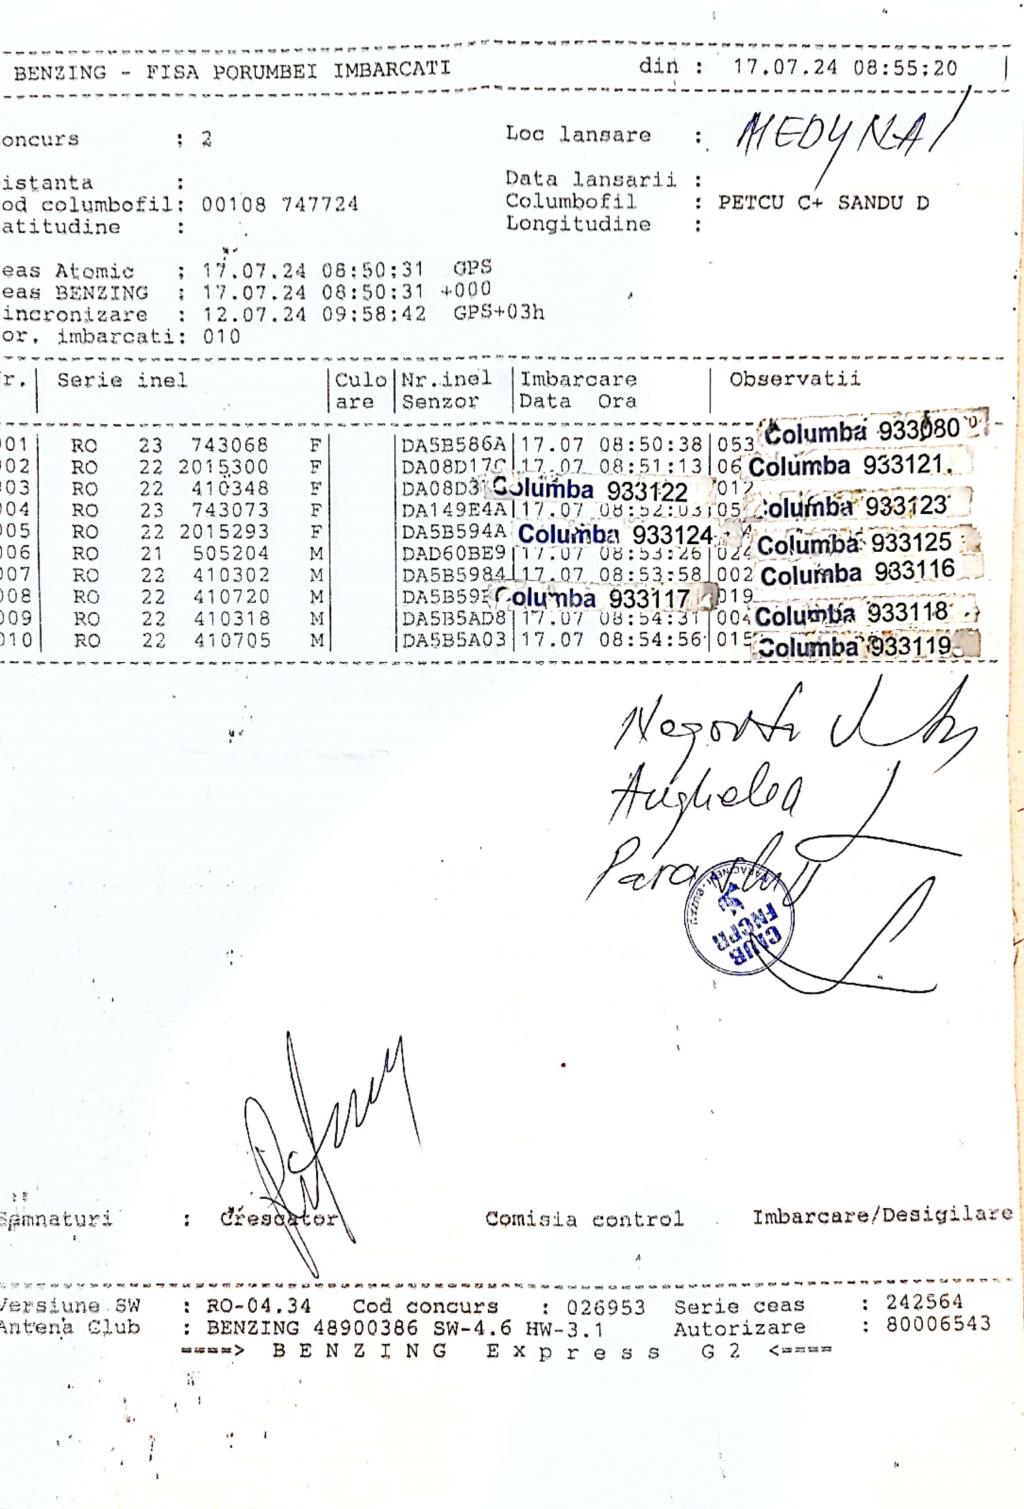 BENZING - FISA PORUMBEI IMBARCATI din : 17.07.24 08:55:20
oncurs : 2 Loc lansare : MEDYNA
istanta : Data lansarii :
od columbofil: 00108 747724 Columbofil : PETCU C+ SANDU D
atitudine : Longitudine :
eas Atomic : 17.07.24 08:50:31 GPS
eas BENZING : 17.07.24 08:50:31 +000
incronizare : 12.07.24 09:58:42 GPS+03h
or. imbarcati: 010
r. Serie inel Culo Nr.inel Imbarcare Observatii
are Senzor Data Ora
01 RO 23 743068 F DA5B586A 17.07 08:50:38 053 Columba 933080
02 RO 22 2015300 F DA08D17C 17.07 08:51:13 06 Columba 933121
03 RO 22 410348 F DA08D3 Columba 933122 012
04 RO 23 743073 F DA149E4A 17.07 08:52:03 05 Columba 933123
05 RO 22 2015293 F DA5B594A Columba 933124
06 RO 21 505204 M DAD60BE9 17.07 08:53:26 024 Columba 933125
07 RO 22 410302 M DA5B5984 17.07 08:53:58 002 Columba 933116
08 RO 22 410720 M DA5B59 Columba 933117 019
09 RO 22 410318 M DA5B5AD8 17.07 08:54:31 004 Columba 933118
010 RO 22 410705 M DA5B5A03 17.07 08:54:56 015 Columba 933119
Anghelea
CLUB
FNCPR
Semnaturi : Crescator Comisia control Imbarcare/Desigilare
Versiune SW : RO-04.34 Cod concurs : 026953 Serie ceas : 242564
Antena Club : BENZING 48900386 SW-4.6 HW-3.1 Autorizare : 80006543
====> B E N Z I N G E x p r e s s G 2 <====